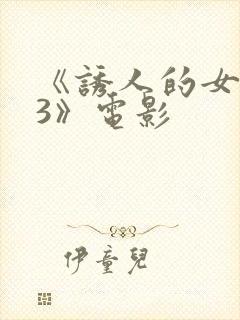 《誘人的女
3》電影
伊童兒